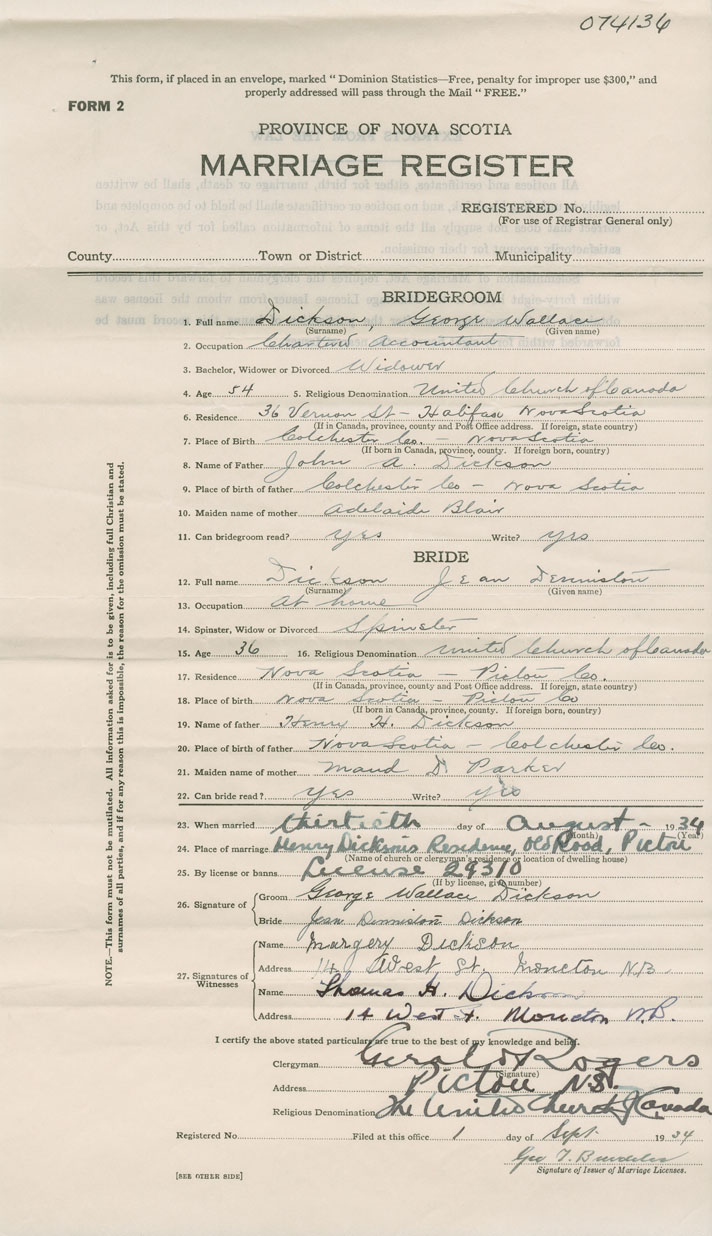 074136
This form, if placed in an envelope, marked "Dominion Statistics—Free, penalty for improper use $300," and
properly addressed will pass through the Mail "FREE."
FORM 2
PROVINCE OF NOVA SCOTIA
MARRIAGE REGISTER
REGISTERED No.
(For use of Registrar General only)
County Town or District Municipality
BRIDEGROOM
1. Full name Dickson, George Wallace
(Surname) (Given name)
2. Occupation Chartered Accountant
3. Bachelor, Widower or Divorced Widower
4. Age 54 5. Religious Denomination United Church of Canada
6. Residence 36 Vernon St - Halifax Nova Scotia
(If in Canada, province, county and Post Office address. If foreign, state country)
7. Place of Birth Colchester Co. - Nova Scotia
(If born in Canada, province, county. If foreign born, country)
8. Name of Father John A. Dickson
9. Place of birth of father Colchester Co - Nova Scotia
10. Maiden name of mother Adelaide Blair
11. Can bridegroom read? yes Write? yes
BRIDE
12. Full name Dickson Jean Denniston
(Surname) (Given name)
13. Occupation At home
14. Spinster, Widow or Divorced Spinster
15. Age 36 16. Religious Denomination United Church of Canada
17. Residence Nova Scotia - Pictou Co.
(If in Canada, province, county and Post Office address. If foreign, state country)
18. Place of birth Nova Scotia - Pictou Co
(If born in Canada, province, county. If foreign born, country)
19. Name of father Henry H. Dickson
20. Place of birth of father Nova Scotia - Colchester Co.
21. Maiden name of mother Maud D Parker
22. Can bride read? yes Write? yes
23. When married thirtieth day of August - 1934
(Month) (Year)
24. Place of marriage Henry Dickson's Residence, Old Road, Pictou
(Name of church or clergyman's residence or location of dwelling house)
25. By license or banns License 29310
(If by license, give number)
26. Signature of
Groom George Wallace Dickson
Bride Jean Denniston Dickson
27. Signatures of Witnesses
Name Margery Dickson
Address 14 West St. Moncton N.B.
Name Thomas H. Dickson
Address 14 West St. Moncton N.B.
I certify the above stated particulars are true to the best of my knowledge and belief.
Clergyman Gerald Rogers
(Signature)
Address Pictou N.S.
Religious Denomination The United Church of Canada
Registered No. Filed at this office 1 day of Sept 1934
Geo T.
Signature of Issuer of Marriage Licenses.
[SEE OTHER SIDE]
NOTE.—This form must not be mutilated. All information asked for is to be given, including full Christian and
surnames of all parties, and if for any reason this is impossible, the reason for the omission must be stated.